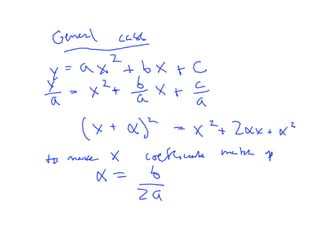 General case
y = ax² + bx + c
y/a = x² + b/a x + c/a
(x + α)² = x² + 2αx + α²
to make x coefficients match up
α = b/2a